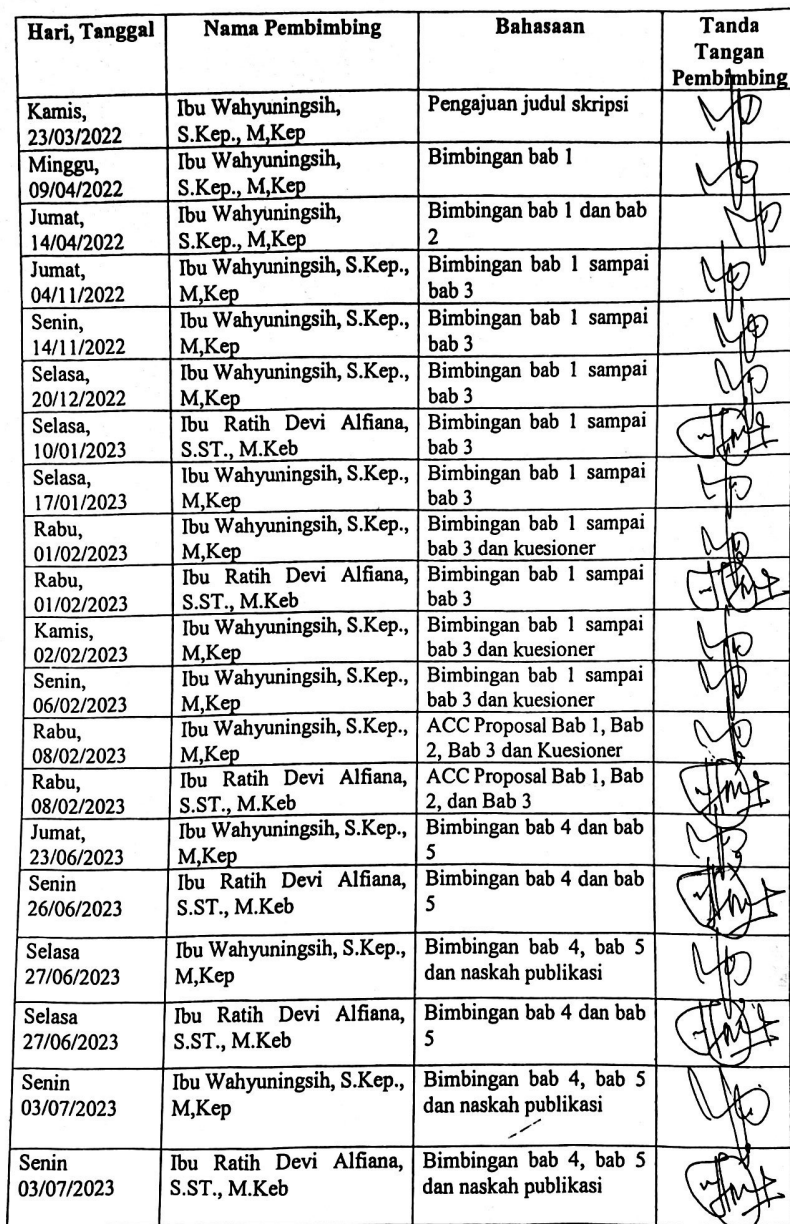 Hari, Tanggal
Nama Pembimbing
Bahasaan
Tanda
Tangan
Pembimbing
Kamis,
23/03/2022
Ibu Wahyuningsih,
S.Kep., M,Kep
Pengajuan judul skripsi
Minggu,
09/04/2022
Ibu Wahyuningsih,
S.Kep., M,Kep
Bimbingan bab 1
Jumat,
14/04/2022
Ibu Wahyuningsih,
S.Kep., M,Kep
Bimbingan bab 1 dan bab
2
Jumat,
04/11/2022
Ibu Wahyuningsih, S.Kep.,
M,Kep
Bimbingan bab 1 sampai
bab 3
Senin,
14/11/2022
Ibu Wahyuningsih, S.Kep.,
M,Kep
Bimbingan bab 1 sampai
bab 3
Selasa,
20/12/2022
Ibu Wahyuningsih, S.Kep.,
M,Kep
Bimbingan bab 1 sampai
bab 3
Selasa,
10/01/2023
Ibu Ratih Devi Alfiana,
S.ST., M.Keb
Bimbingan bab 1 sampai
bab 3
Selasa,
17/01/2023
Ibu Wahyuningsih, S.Kep.,
M,Kep
Bimbingan bab 1 sampai
bab 3
Rabu,
01/02/2023
Ibu Wahyuningsih, S.Kep.,
M,Kep
Bimbingan bab 1 sampai
bab 3 dan kuesioner
Rabu,
01/02/2023
Ibu Ratih Devi Alfiana,
S.ST., M.Keb
Bimbingan bab 1 sampai
bab 3
Kamis,
02/02/2023
Ibu Wahyuningsih, S.Kep.,
M,Kep
Bimbingan bab 1 sampai
bab 3 dan kuesioner
Senin,
06/02/2023
Ibu Wahyuningsih, S.Kep.,
M,Kep
Bimbingan bab 1 sampai
bab 3 dan kuesioner
Rabu,
08/02/2023
Ibu Wahyuningsih, S.Kep.,
M,Kep
ACC Proposal Bab 1, Bab
2, Bab 3 dan Kuesioner
Rabu,
08/02/2023
Ibu Ratih Devi Alfiana,
S.ST., M.Keb
ACC Proposal Bab 1, Bab
2, dan Bab 3
Jumat,
23/06/2023
Ibu Wahyuningsih, S.Kep.,
M,Kep
Bimbingan bab 4 dan bab
5
Senin
26/06/2023
Ibu Ratih Devi Alfiana,
S.ST., M.Keb
Bimbingan bab 4 dan bab
5
Selasa
27/06/2023
Ibu Wahyuningsih, S.Kep.,
M,Kep
Bimbingan bab 4, bab 5
dan naskah publikasi
Selasa
27/06/2023
Ibu Ratih Devi Alfiana,
S.ST., M.Keb
Bimbingan bab 4 dan bab
5
Senin
03/07/2023
Ibu Wahyuningsih, S.Kep.,
M,Kep
Bimbingan bab 4, bab 5
dan naskah publikasi
Senin
03/07/2023
Ibu Ratih Devi Alfiana,
S.ST., M.Keb
Bimbingan bab 4, bab 5
dan naskah publikasi